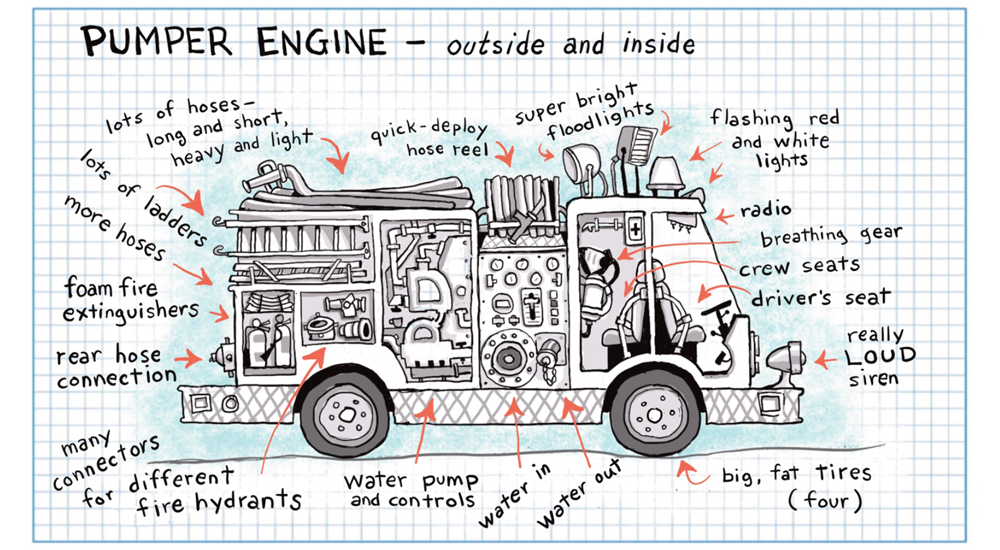 PUMPER ENGINE – outside and inside
lots of hoses–
long and short,
heavy and light
quick-deploy
hose reel
super bright
floodlights
flashing red
and white
lights
lots of ladders
more hoses
radio
breathing gear
crew seats
driver's seat
foam fire
extinguishers
rear hose
connection
really
LOUD
siren
many
connectors
for different
fire hydrants
water pump
and controls
water in
water out
big, fat tires
(four)